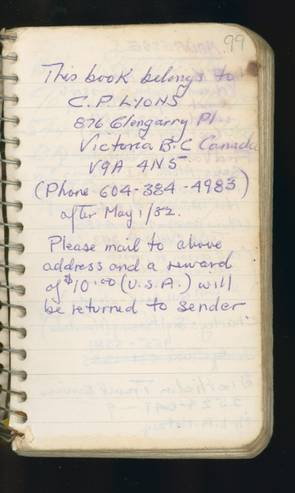 99
This book belongs to
C.P. LYONS
876 Glengarry Pl
Victoria B.C Canada
V9A 4N5
(Phone 604-384-4983)
after May 1/82.
Please mail to above
address and a reward
of $10.00 (U.S.A.) will
be returned to sender